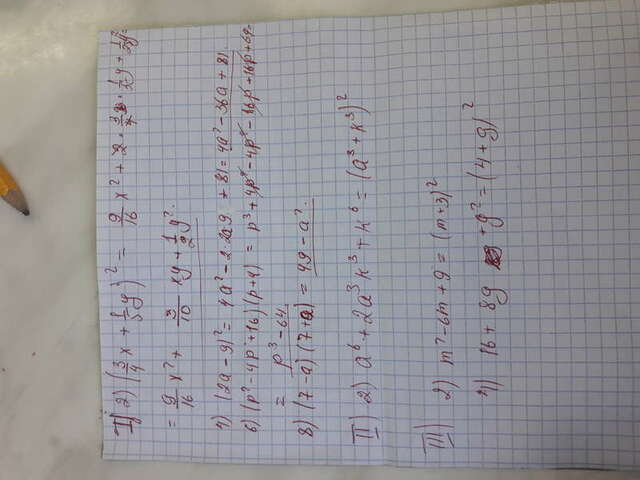 I) 2) (3/4 x + 1/5 y)² = 9/16 x² + 2 · 3/4 x · 1/5 y + 1/25 y² =
= 9/16 x² + 3/10 xy + 1/2 y².
4) (2a - 9)² = 4a² - 2·2a·9 + 81 = 4a² - 36a + 81
6) (p² - 4p + 16)(p + 4) = p³ + 4p² - 4p² - 16p + 16p + 64 =
= p³ - 64.
8) (7 - a)(7 + a) = 49 - a².
II) 2) a⁶ + 2a³k³ + k⁶ = (a³ + k³)²
III) 2) m² - 6m + 9 = (m + 3)²
4) 16 + 8g + g² = (4 + g)²